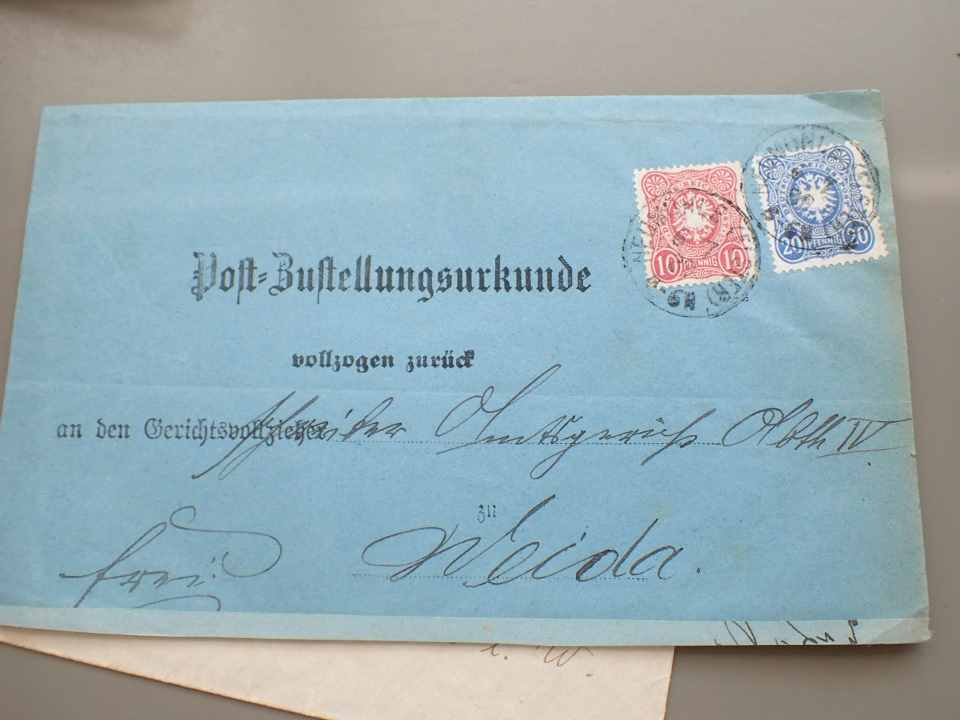 Post-Zustellungsurkunde
vollzogen zurück
an den Gerichtsvollzieher schreiber Amtsgericht Abth IV
zu
Weida.
frei
10 PFENNIG 10
20 PFENNIG 20